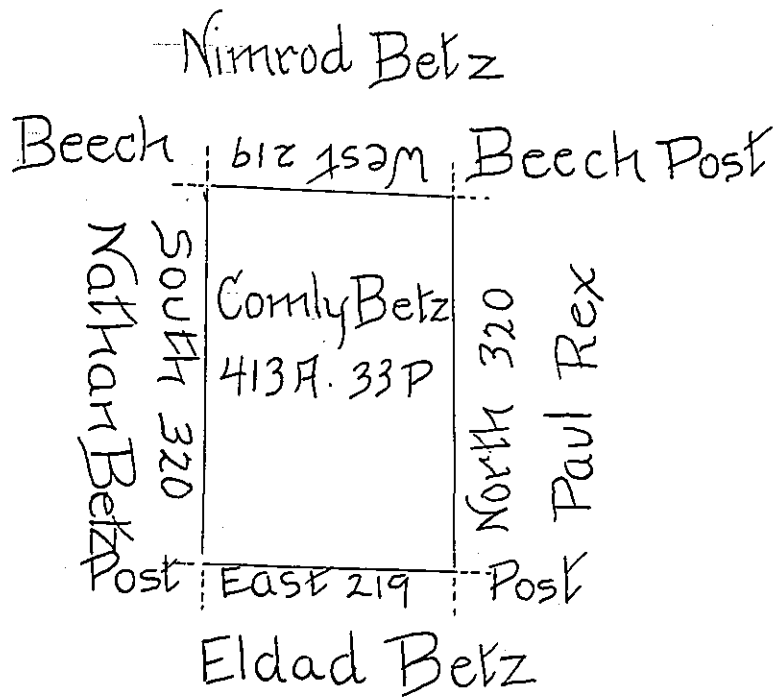 Nimrod Betz
Beech West 219 Beech Post
Nathan Betz
South 320
Comly Betz
413A. 33P
North 320
Paul Rex
Post East 219 Post
Eldad Betz